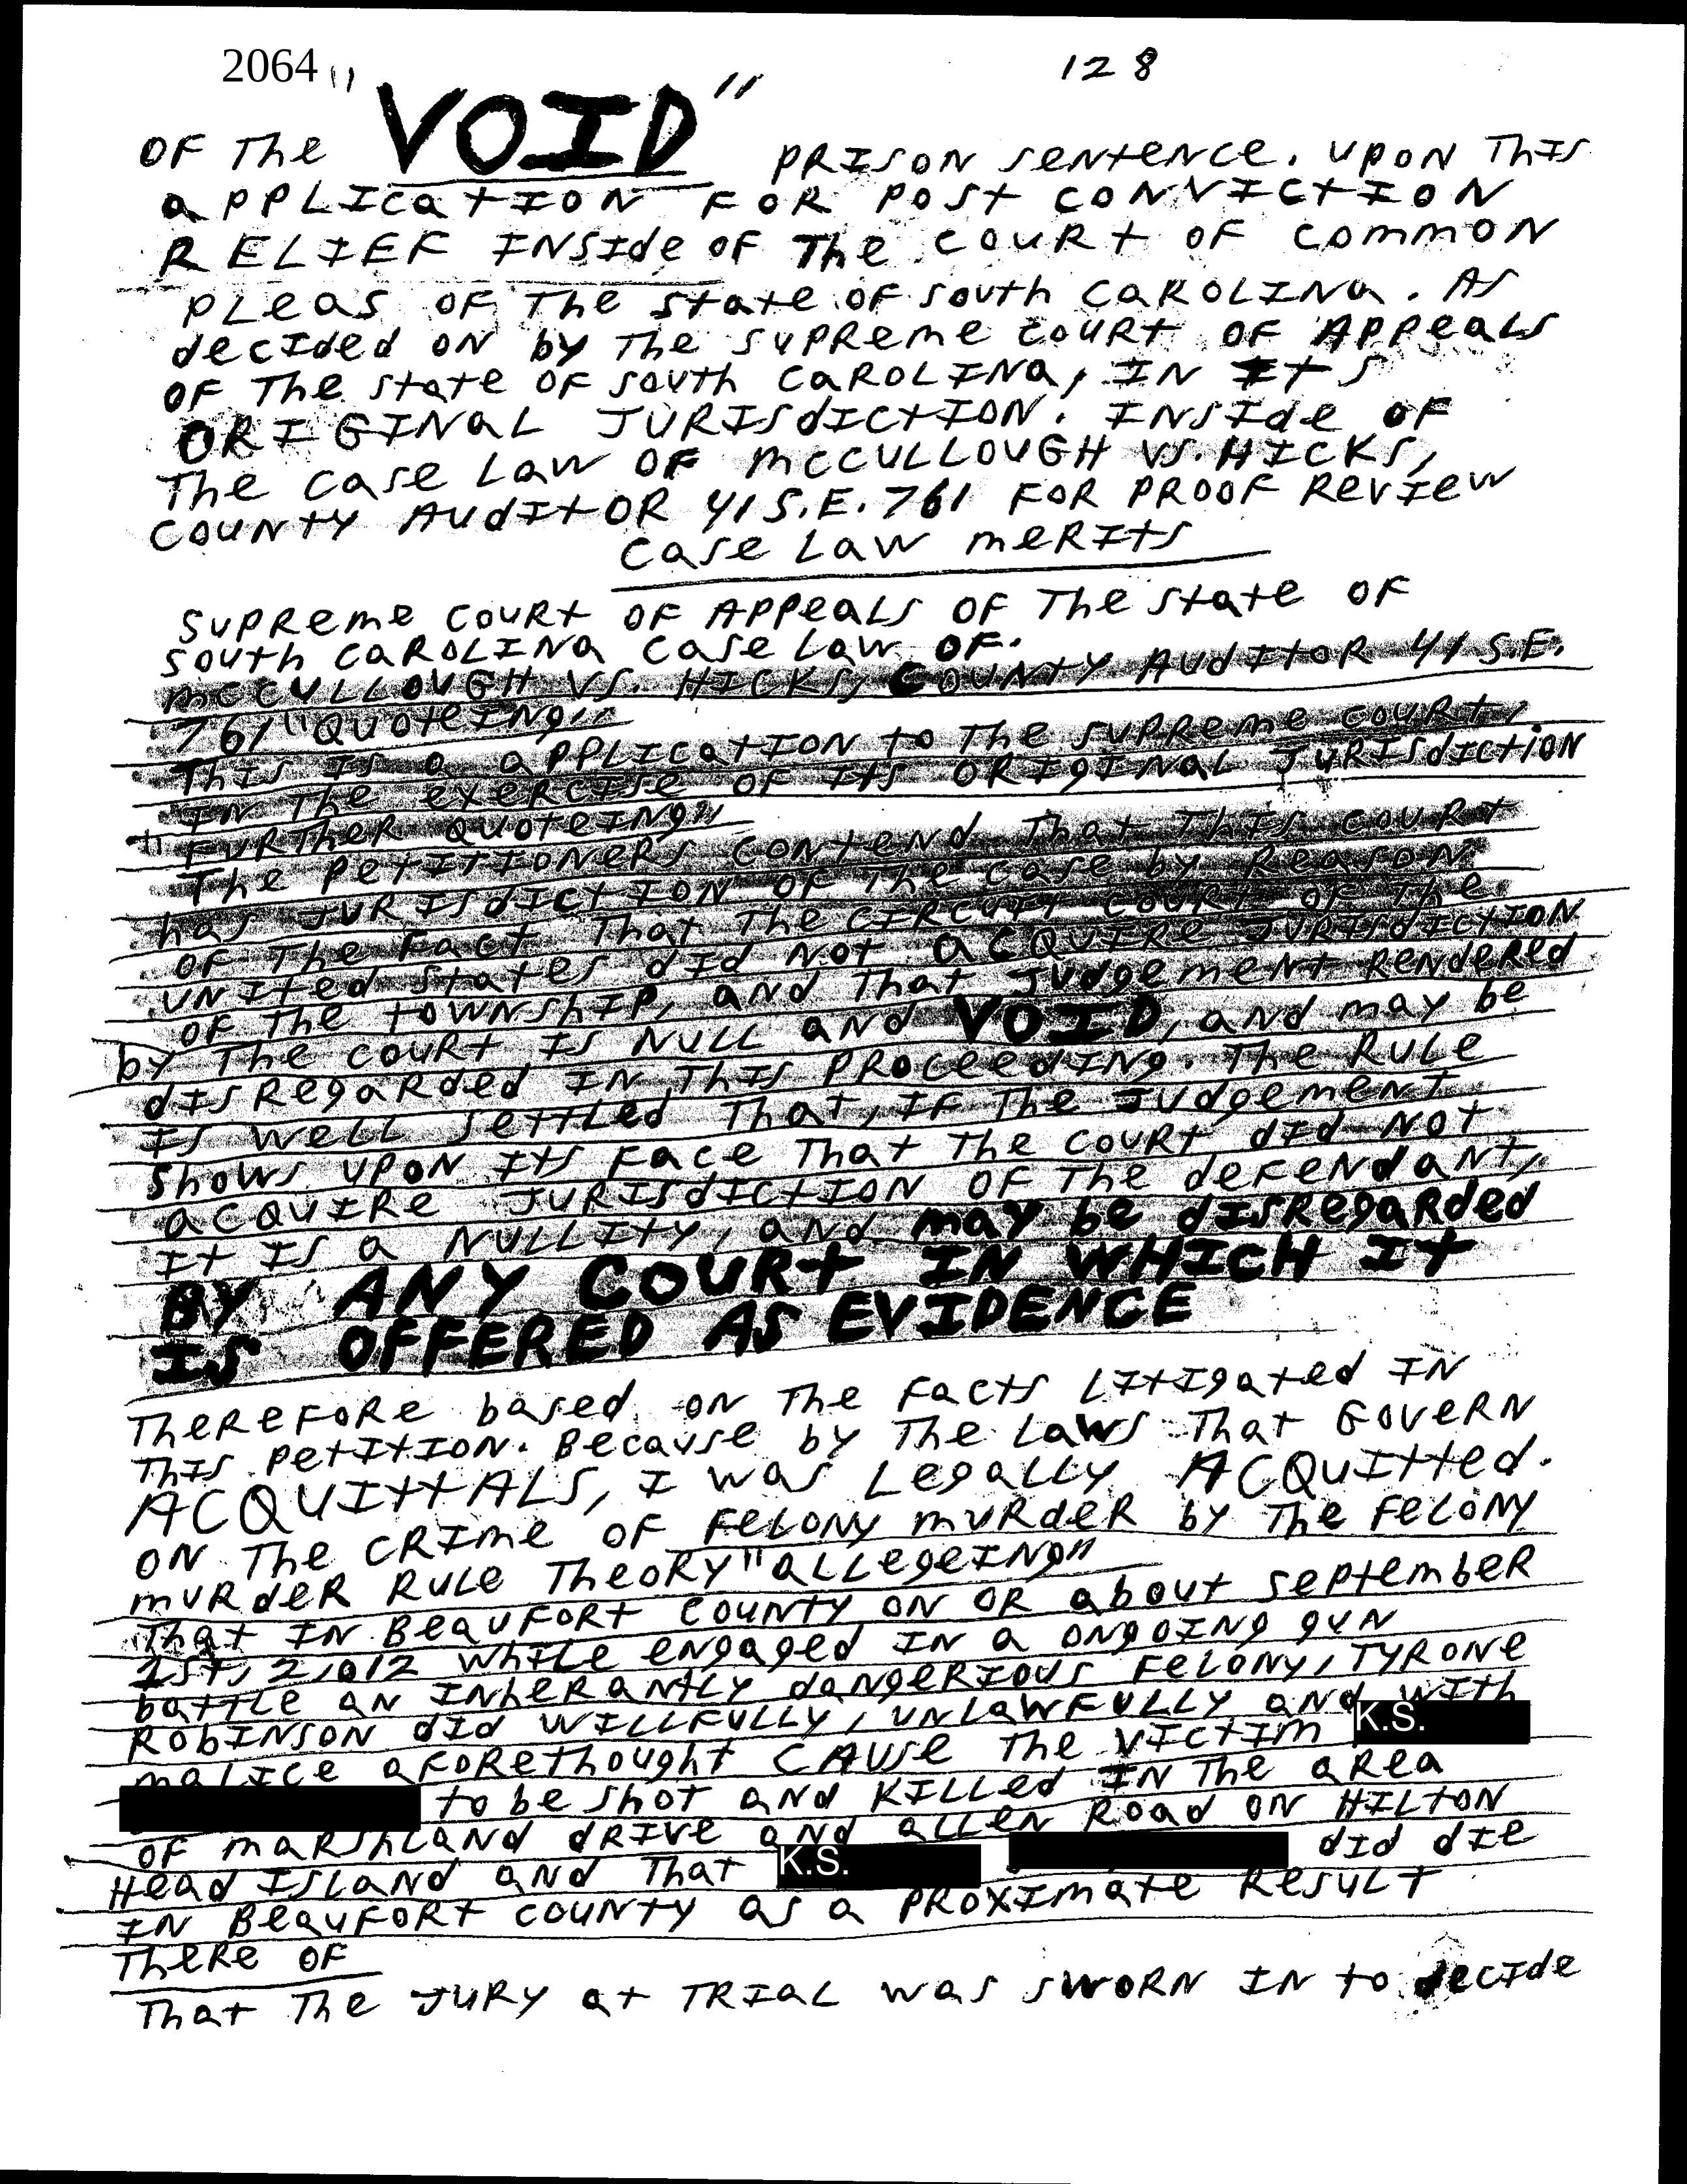 2064 128
OF The "VOID" PRISON SENTENCE. UPON THIS
APPLICATION FOR POST CONVICTION
RELIEF INSIDE OF The COURT OF COMMON
PLEAS OF The STATE OF SOUTH CAROLINA. AS
decided ON by The SUPREME COURT OF APPEALS
OF The STATE OF SOUTH CAROLINA, IN ITS
ORIGINAL JURISDICTION. INSIDE OF
The CASE LAW OF MCCULLOUGH VS. HICKS,
COUNTY AUDITOR 41 S.E. 761 FOR PROOF REVIEW
CASE LAW MERITS
SUPREME COURT OF APPEALS OF The STATE OF
SOUTH CAROLINA CASE LAW OF.
MCCULLOUGH VS. HICKS, COUNTY AUDITOR 41 S.E.
761 "QUOTEING"
THIS IS A APPLICATION TO The SUPREME COURT,
IN The EXERCISE OF ITS ORIGINAL JURISDICTION
"FURTHER QUOTEING"
The PETITIONERS CONTEND THAT THIS COURT
has JURISDICTION OF The CASE by REASON
OF The FACT THAT The CIRCUIT COURT OF The
UNITED STATES did NOT ACQUIRE JURISDICTION
OF The TOWNSHIP, AND THAT JUDGEMENT RENDERED
by The COURT IS NULL AND VOID, AND may be
DISREGARDED IN THIS PROCEEDING. The RULE
IS WELL SETTLED THAT, IF The JUDGEMENT
Shows UPON ITS FACE THAT The COURT did NOT
ACQUIRE JURISDICTION OF The defendant,
IT IS A NULLITY, AND may be disregarded
BY ANY COURT IN WHICH IT
IS OFFERED AS EVIDENCE
THEREFORE based ON The FACTS LITIGATED IN
THIS PETITION. BECAUSE by The LAWS THAT GOVERN
ACQUITTALS, I WAS LEGALLY ACQUITTED.
ON The CRIME OF FELONY MURDER by The FELONY
MURDER RULE THEORY "ALLEGEING"
THAT IN BEAUFORT COUNTY ON OR about SEPTEMBER
1ST, 2,012 WHILE ENGAGED IN A ONGOING GUN
BATTLE AN INHERANTLY dANGERIOUS FELONY, TYRONE
ROBINSON did WILLFULLY, UNLAWFULLY AND WITH
MALICE AFORETHOUGHT CAUSE The VICTIM K.S.
to be SHOT AND KILLED IN The AREA
OF MARSHLAND DRIVE AND ALLEN ROAD ON HILTON
HEAD ISLAND AND THAT K.S. did die
IN BEAUFORT COUNTY AS A PROXIMATE RESULT
THERE OF
THAT The JURY AT TRIAL WAS SWORN IN TO decide